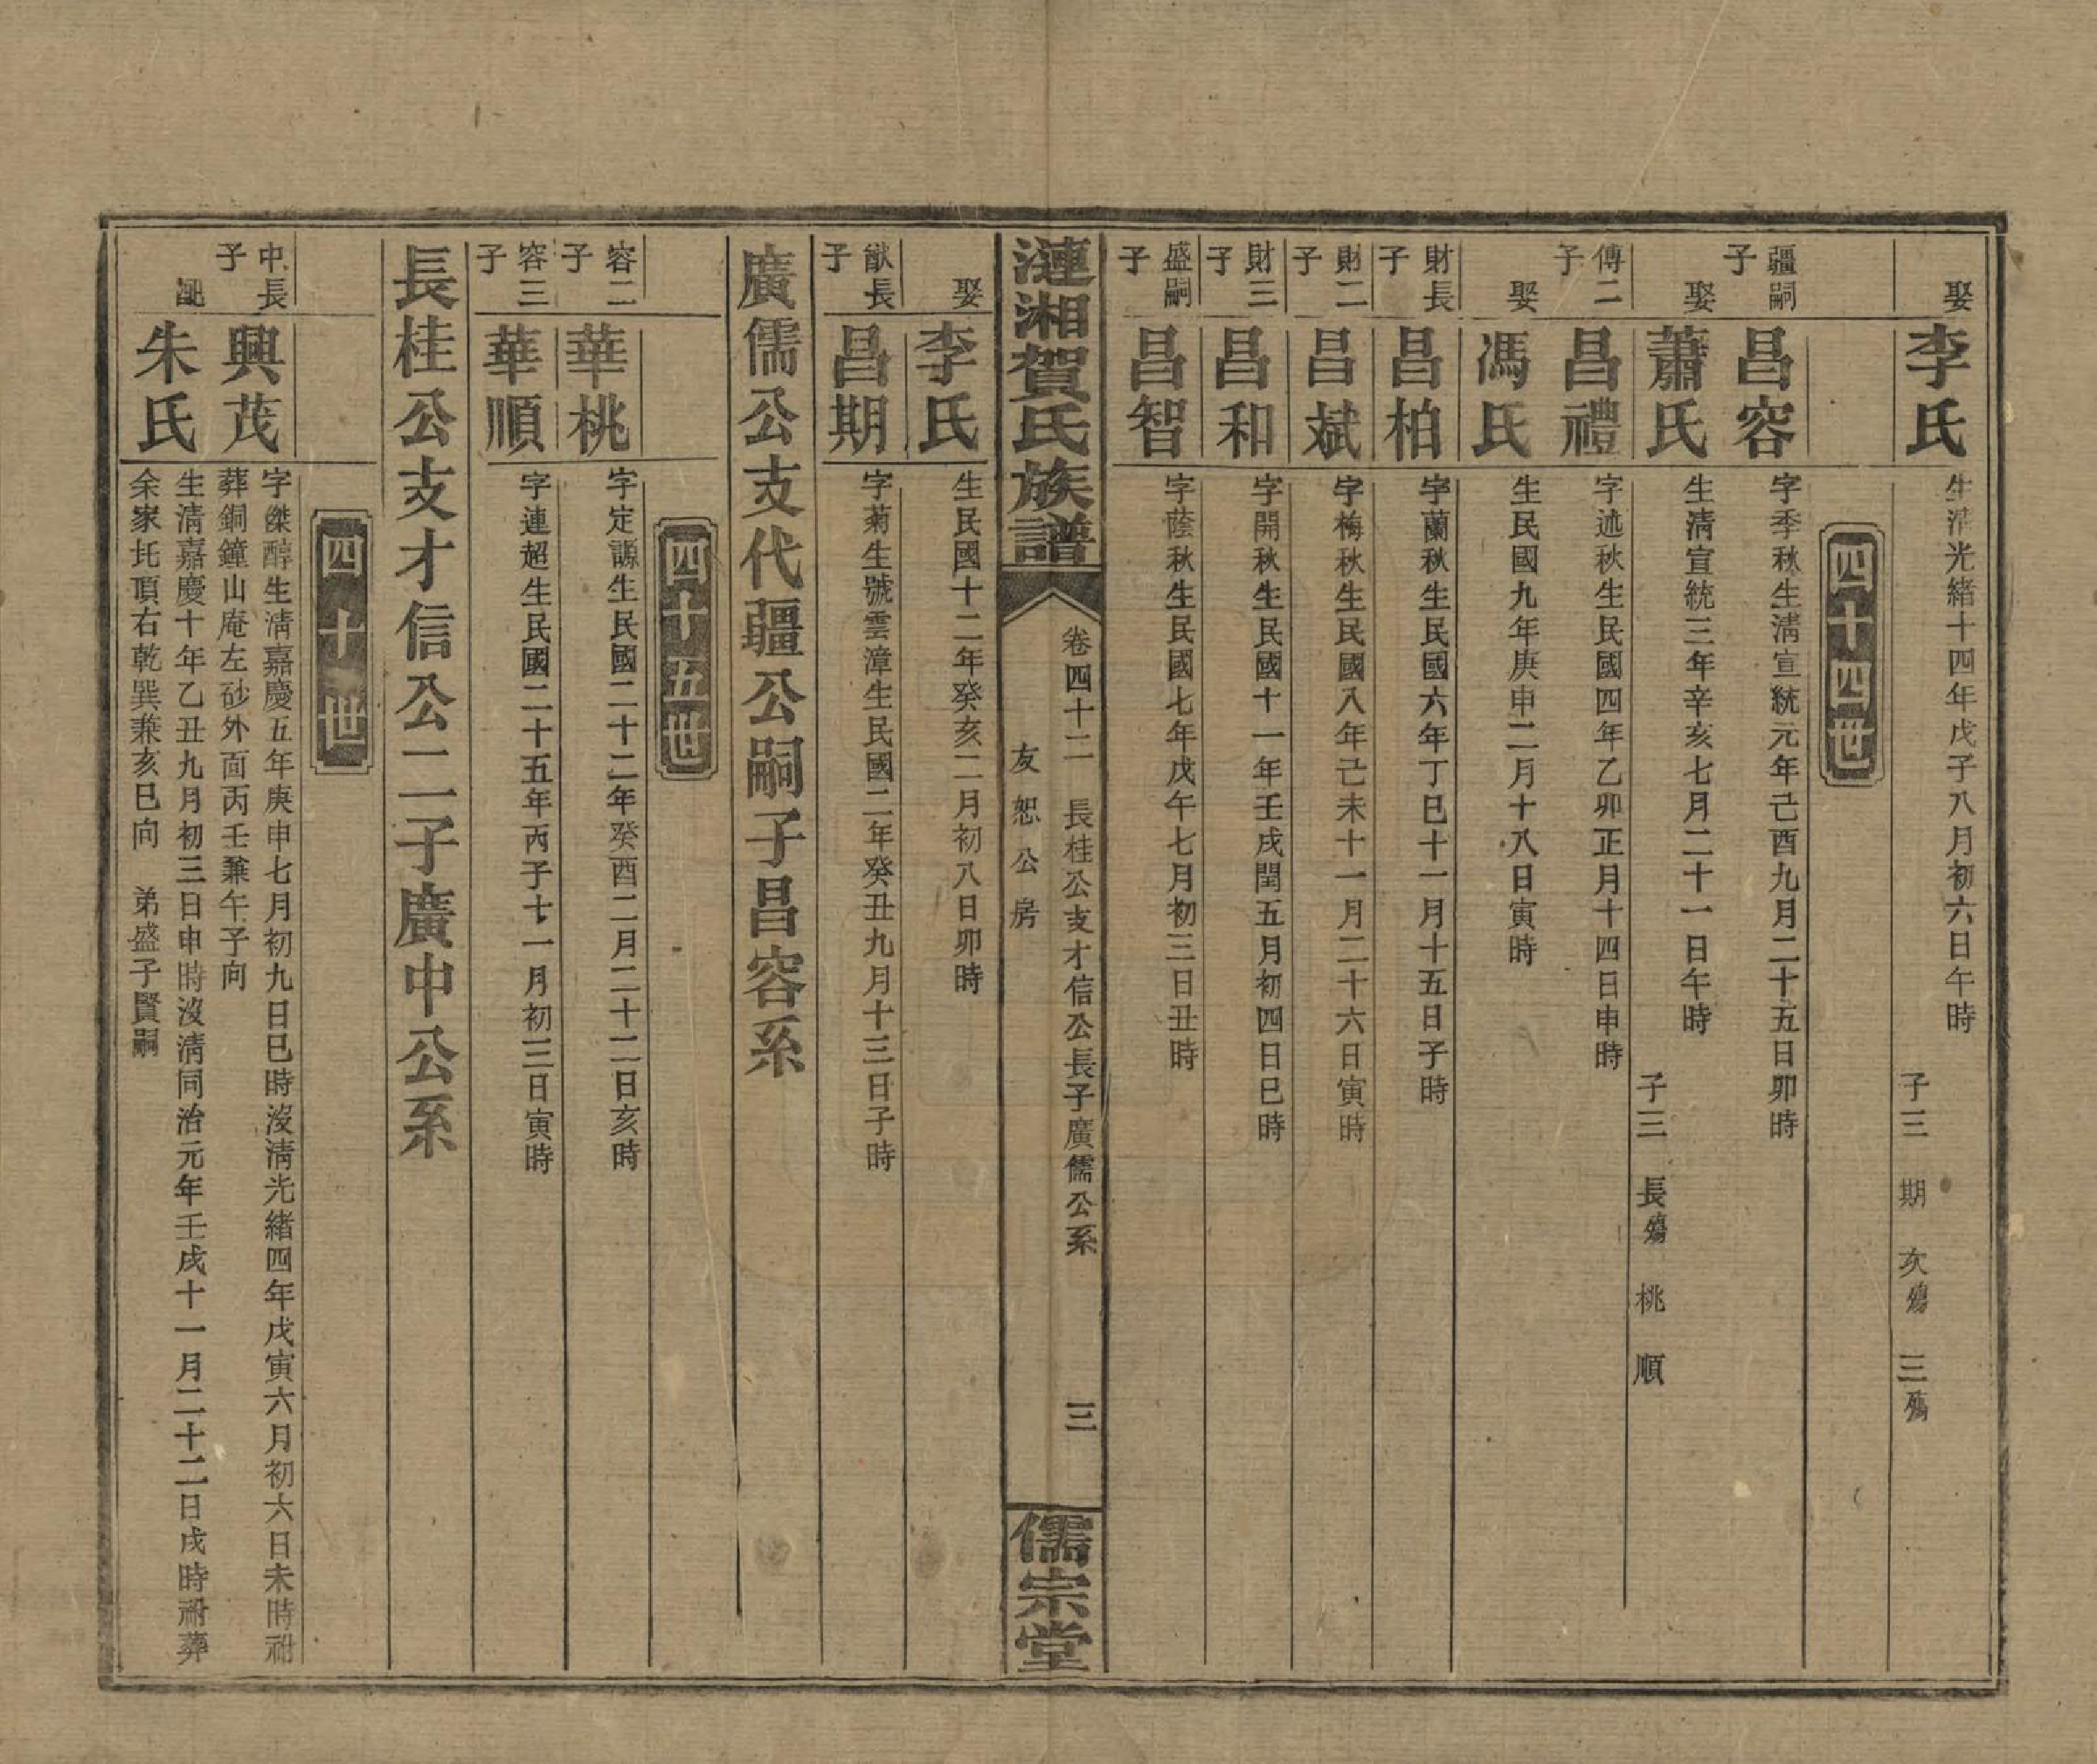 娶
李氏
生清光緒十四年戊子八月初六日午時
子三　期　次殤　三殤
四十四世
疆嗣子
昌容
字季秋生清宣統元年己酉九月二十五日卯時
娶
蕭氏
生清宣統三年辛亥七月二十一日午時
子三　長殤　桃　順
傳二子
昌禮
字述秋生民國四年乙卯正月十四日申時
娶
馮氏
生民國九年庚申二月十八日寅時
財長子
昌柏
字蘭秋生民國六年丁巳十一月十五日子時
財二子
昌斌
字梅秋生民國八年己未十一月二十六日寅時
財三子
昌和
字開秋生民國十一年壬戌閏五月初四日巳時
盛嗣子
昌智
字蔭秋生民國七年戊午七月初三日丑時
漣湘賀氏族譜
卷四十二　長桂公支才信公長子廣儒公系
友恕公房
三
儒宗堂
娶
李氏
生民國十二年癸亥二月初八日卯時
猷長子
昌期
字菊生號雲漳生民國二年癸丑九月十三日子時
廣儒公支代疆公嗣子昌容系
四十五世
容二子
華桃
字定謜生民國二十二年癸酉二月二十二日亥時
容三子
華順
字連超生民國二十五年丙子十一月初三日寅時
長桂公支才信公二子廣中公系
四十世
中長子
興茂
字傑醇生清嘉慶五年庚申七月初九日巳時沒清光緒四年戊寅六月初六日未時祔
葬銅鐘山庵左砂外面丙壬兼午子向
配
朱氏
生清嘉慶十年乙丑九月初三日申時沒清同治元年壬戌十一月二十二日戌時祔葬
余家坵頂右乾巽兼亥巳向　弟盛子賢嗣